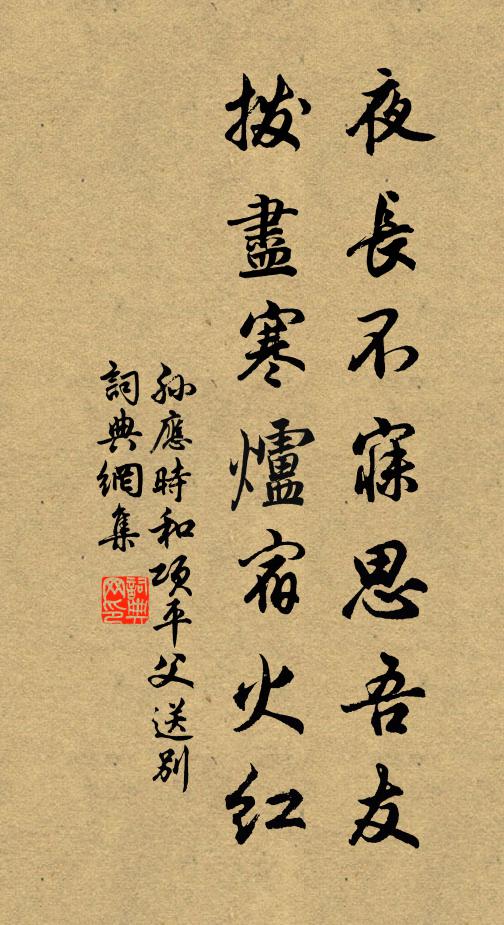 夜長不寐思吾友
撥盡寒爐宿火紅
孫應時和項平父送別
詞典網集
詞典网印